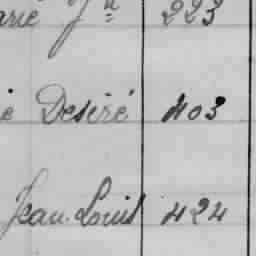 arie Jh 223
e Desiré 403
Jean Louis 424